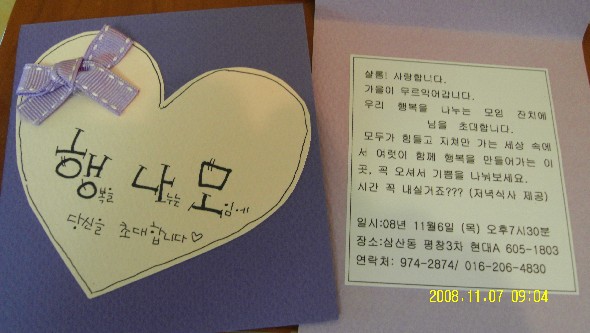 행복을 나누는 모임에
당신을 초대합니다♡
샬롬! 사랑합니다.
가을이 무르익어갑니다.
우리 행복을 나누는 모임 잔치에
님을 초대합니다.
모두가 힘들고 지쳐만 가는 세상 속에
서 여럿이 함께 행복을 만들어가는 이
곳, 꼭 오셔서 기쁨을 나눠보세요.
시간 꼭 내실거죠??? (저녁식사 제공)
일시:08년 11월6일 (목) 오후7시30분
장소:삼산동 평창3차 현대A 605-1803
연락처: 974-2874/ 016-206-4830
2008.11.07 09:04